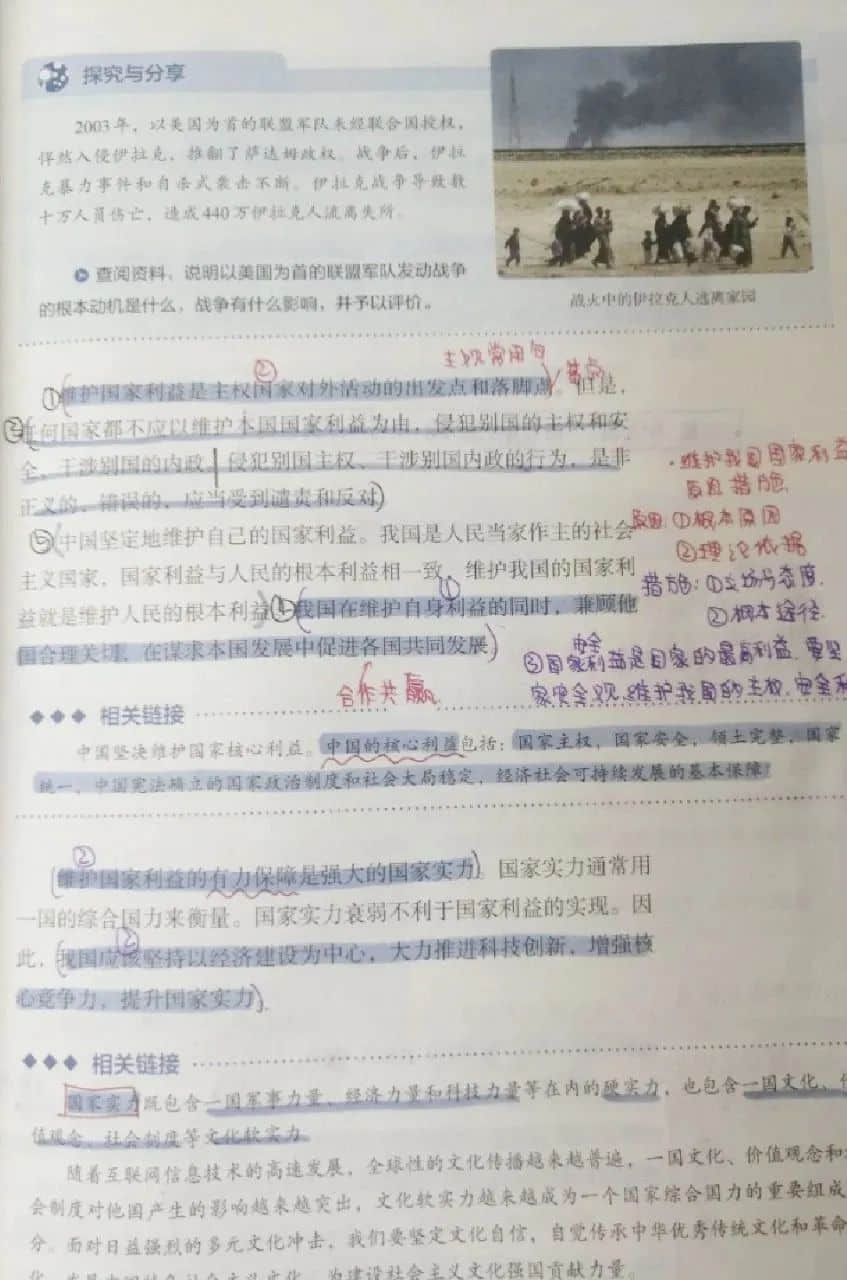 探究与分享
2003年，以美国为首的联盟军队未经联合国授权，
悍然入侵伊拉克，推翻了萨达姆政权。战争后，伊拉
克暴力事件和自杀式袭击不断。伊拉克战争导致数
十万人员伤亡，造成440万伊拉克人流离失所。
查阅资料，说明以美国为首的联盟军队发动战争
的根本动机是什么，战争有什么影响，并予以评价。
战火中的伊拉克人逃离家园
主观常用句
② 落点
①维护国家利益是主权国家对外活动的出发点和落脚点。但是，
任何国家都不应以维护本国国家利益为由，侵犯别国的主权和安
全，干涉别国的内政。侵犯别国主权、干涉别国内政的行为，是非
正义的、错误的，应当受到谴责和反对。
中国坚定地维护自己的国家利益。我国是人民当家作主的社会
主义国家，国家利益与人民的根本利益相一致，维护我国的国家利
益就是维护人民的根本利益。我国在维护自身利益的同时，兼顾他
国合理关切，在谋求本国发展中促进各国共同发展。
·维护我国国家利益
原因 措施
原因：①根本原因
②理论依据
措施：①立场与态度
②根本途径
①
③国家安全利益是国家的最高利益，要坚
家安全观，维护我国的主权、安全和
合作共赢
相关链接
中国坚决维护国家核心利益。中国的核心利益包括：国家主权，国家安全，领土完整，国家
统一，中国宪法确立的国家政治制度和社会大局稳定，经济社会可持续发展的基本保障。
②
维护国家利益的有力保障是强大的国家实力。国家实力通常用
一国的综合国力来衡量。国家实力衰弱不利于国家利益的实现。因
②
此，我国应该坚持以经济建设为中心，大力推进科技创新，增强核
心竞争力，提升国家实力。
相关链接
国家实力既包含一国军事力量、经济力量和科技力量等在内的硬实力，也包含一国文化、价
值观念、社会制度等文化软实力。
随着互联网信息技术的高速发展，全球性的文化传播越来越普遍，一国文化、价值观念和
会制度对他国产生的影响越来越突出，文化软实力越来越成为一个国家综合国力的重要组成
分。面对日益强烈的多元文化冲击，我们要坚定文化自信，自觉传承中华优秀传统文化和革命
为建设社会主义文化强国贡献力量。